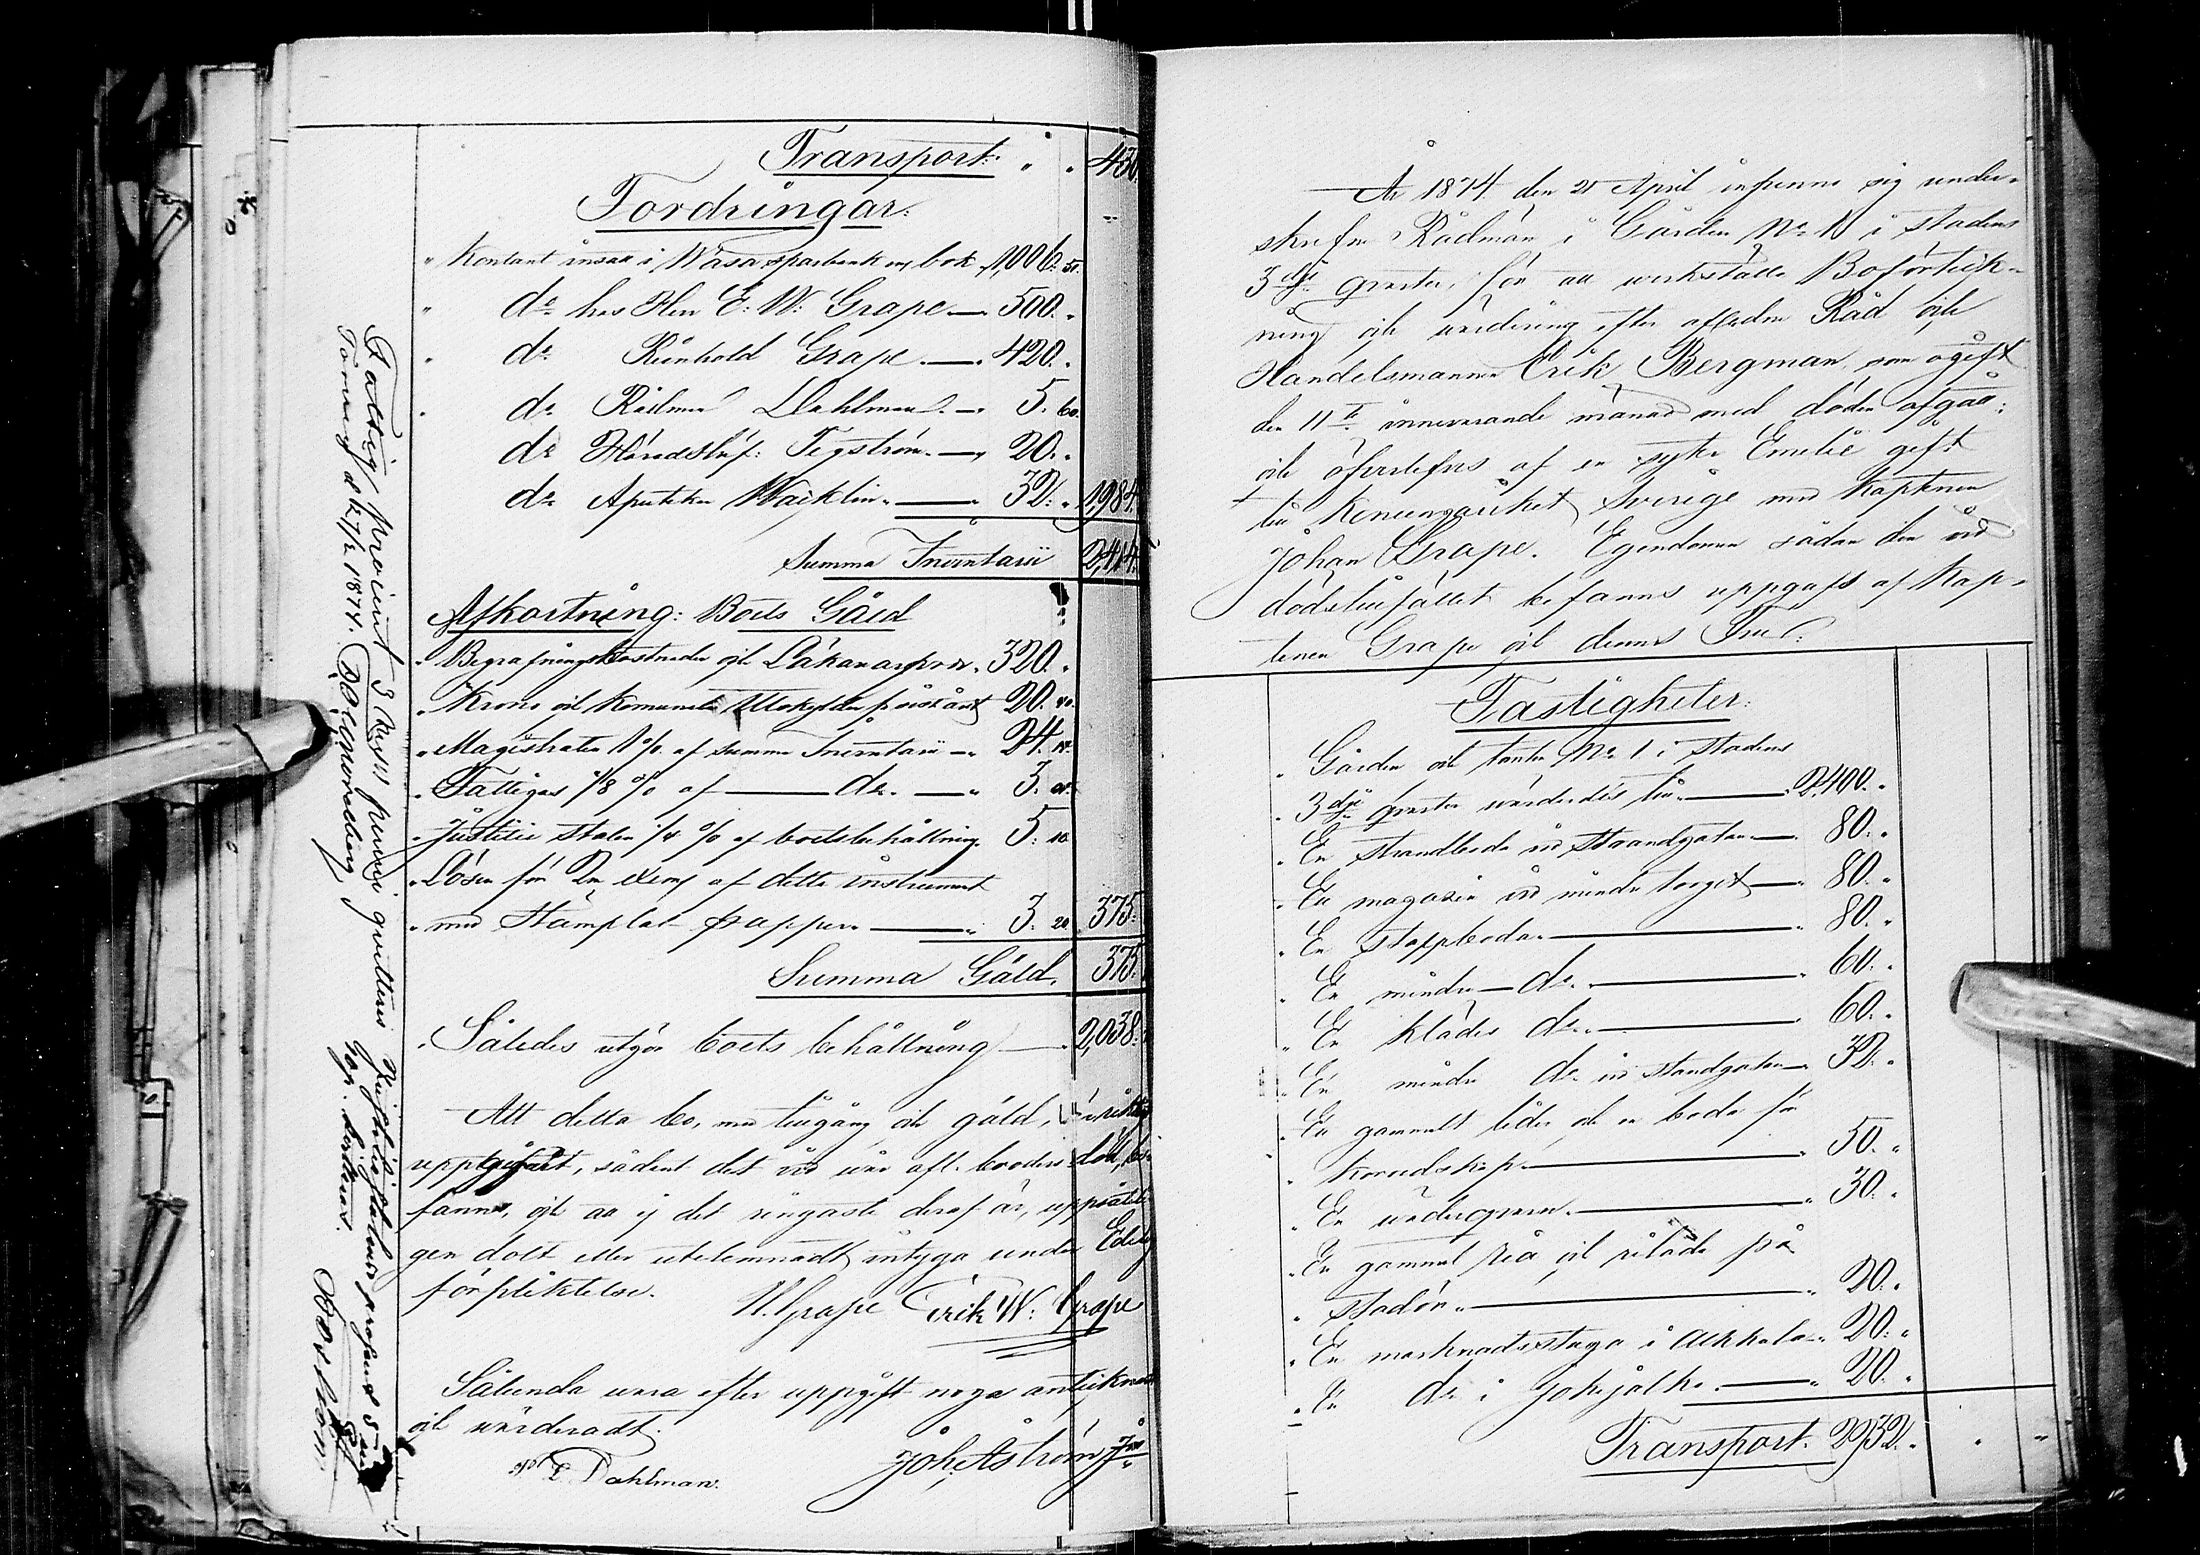 Transport: " " 430.
Fordringar:
" Kontant insatt i Wasa sparbank en bok 1,006. 51.
" do hos Herr E: W: Grape — 500. "
" do Reinhold Grape — 420. "
" do Rådman Dahlman — 5. 60.
do Häradshöf: Tegström — 20. "
do Apotekar Wacklin — 32. " 1,984.
Summa Inventarii 2,414.
Afkortning: Boets Gäld
" Begrafningskostnader och Läkararfvode 320. "
" Krono och Komunal Utskylder 20.
" Magistraten 1 % af summa Inventarii — 24. 14.
" Fattigas 1/8 % af — do — 3.
" Justitie Staten 1/4 % af boets behållning 5. 10.
" Lösen för 2ne exemp af detta instrument
" med Stämplat papper — 3. 20. 375.
Summa Gäld. 375.
" Således utgör boets behållning — 2,038.
Att detta bo, med tillgång och gäld, är riktigt
uppgifvet, sådant det vid vår afl. broders död, be-
fanns, och att ej det ringaste deraf är, uppsåtli-
gen dolt eller utelemnadt intyga under Edelig
förpliktelse. H. Grape Erik W: Grape
Sålunda vara efter uppgift noga antecknadt
och värderadt.
Dahlman. Joh: Åström Jnr
Fattig procent 3 penni qvitteras
Torneå d 27/5 1874.
År 1874 den 21 April infunno sig under-
skrefne Rådmän i Gården No 1 i stadens
3dje qvarter, för att verkställa Boförteck-
ning och värdering efter aflidne Råd och
Handelsmannen Erik Bergman, som ogift
den 11te innevarande månad med döden afgått:
och öfverlefves af en syster Emelie gift
till Konungariket Sverige med Kaptenen
Johan Grape. Egendomen sådan den vid
dödstillfället befanns uppgafs af Kap-
tenen Grape och dennes Fru:
Fastigheter:
" Gården och tomten No 1 i stadens
" 3dje qvarter värderades till — 2,400. "
" En strandbode vid Strandgatan — 80. "
" En magasin vid mindre torget — 80. "
" En stappbodar — 80. "
" En mindre do — 60. "
" En klädes do — 60. "
" En mindre do vid standgatan — 32. "
" En gammalt lider och en bode för
" koredskap — 50. "
" En väderqvarn — 30. "
" En gammal ria och rilada på
" stadön — 20. "
" En marknadsstuga i Akkala — 20. "
" En do i Jokijalki — 20. "
Transport. 2,932. " " "